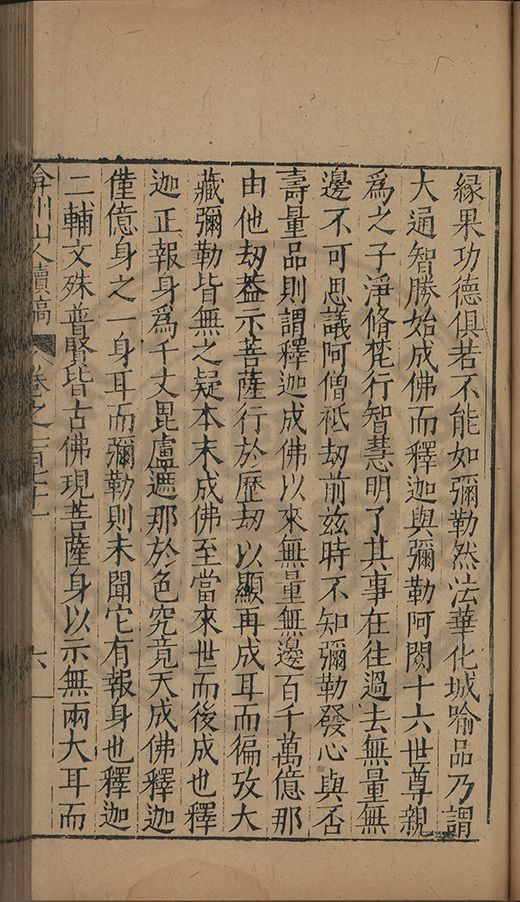 縁果功德俱若不能如彌勒然法華化城喻品乃謂
大通智勝始成佛而釋迦與彌勒阿閦十六世尊親
爲之子淨脩梵行智慧明了其事在往過去無量無
邊不可思議阿僧祇劫前兹時不知彌勒發心與否
壽量品則謂釋迦成佛以來無量無邊百千萬億那
由他劫葢示菩薩行於歷劫以顯再成耳而徧攷大
藏彌勒皆無之疑本未成佛至當來世而後成也釋
迦正報身爲千丈毘盧遮那於色究竟天成佛釋迦
僅億身之一身耳而彌勒則未聞它有報身也釋迦
二輔文殊普賢皆古佛現菩薩身以示無兩大耳而
弇州山人續稿 卷之一百五十一 六